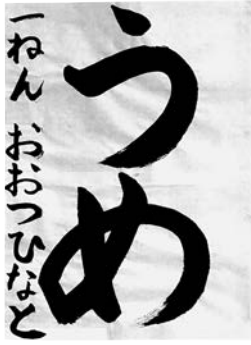 うめ
一ねん おおつひなと